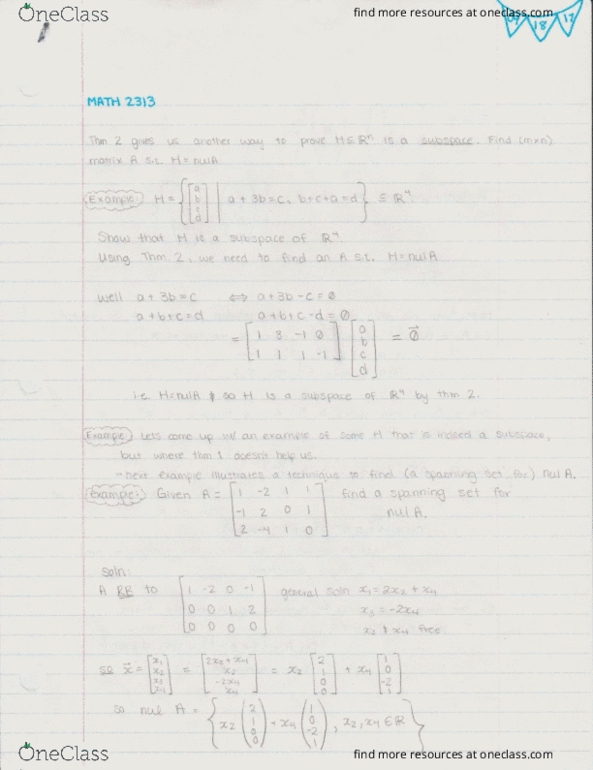 OneClass
find more resources at oneclass.com
09 18 17
MATH 2313
Thm 2 gives us another way to prove H⊆ℝⁿ is a subspace. Find (m×n)
matrix A s.t. H = nul A.
Example: H = { [a b c d] | a + 3b = c, b+c+a = d } ⊆ ℝ⁴.
Show that H is a subspace of ℝ⁴.
Using Thm. 2, we need to find an A s.t. H = nul A
well a + 3b = c ⟺ a + 3b - c = 0
a + b + c = d a + b + c - d = 0
= [1 3 -1 0
1 1 1 -1] [a b c d] = 0⃗
i.e. H = nul A & so H is a subspace of ℝ⁴ by thm 2.
Example: Lets come up w/ an example of some H that is indeed a subspace,
but where thm 1 doesn't help us.
→ next example illustrates a technique to find (a spanning set for) nul A.
Example: Given A = [1 -2 1 1
-1 2 0 1
2 -4 1 0] find a spanning set for
nul A.
soln:
A RR to [1 -2 0 -1
0 0 1 2
0 0 0 0] general soln x₁ = 2x₂ + x₄
x₃ = -2x₄
x₂ & x₄ free
so x⃗ = [x₁ x₂ x₃ x₄] = [2x₂ + x₄ x₂ -2x₄ x₄] = x₂ [2 1 0 0] + x₄ [1 0 -2 1]
so nul A = { x₂ (2 1 0 0) + x₄ (1 0 -2 1), x₂, x₄ ∈ ℝ }
OneClass
find more resources at oneclass.com